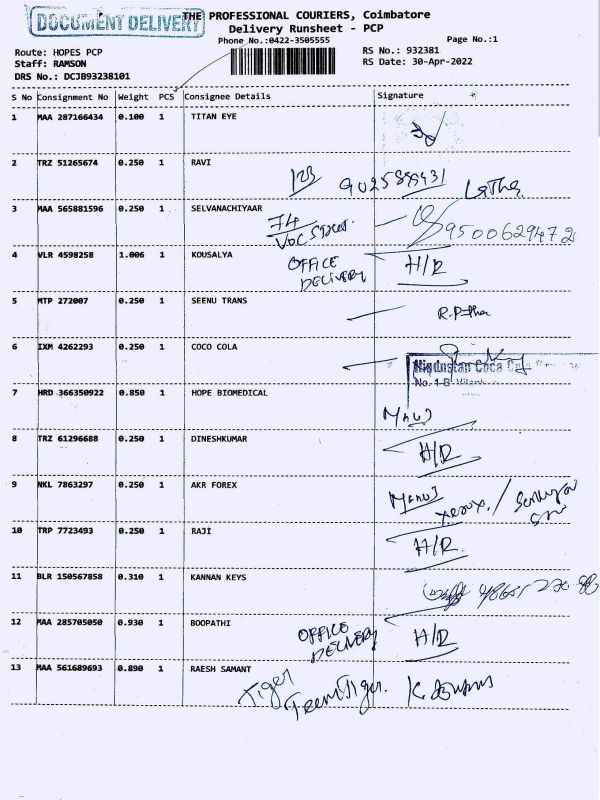 DOCUMENT DELIVERY
THE PROFESSIONAL COURIERS, Coimbatore
Delivery Runsheet - PCP
Phone No.:0422-3505555
Page No.:1
Route: HOPES PCP
RS No.: 932381
Staff: RAMSON
RS Date: 30-Apr-2022
DRS No.: DCJB93238101
S No Consignment No Weight PCS Consignee Details Signature
1 MAA 287166434 0.100 1 TITAN EYE
2 TRZ 51265674 0.250 1 RAVI
123 Latha
3 MAA 565881596 0.250 1 SELVANACHIYAAR
74
VOC Street.
9500629472
4 VLR 4598258 1.006 1 KOUSALYA
OFFICE DELIVERY H/R
5 MTP 272007 0.250 1 SEENU TRANS
6 IXM 4262293 0.250 1 COCO COLA
Hindustan Coca Cola
No. 1-B
7 HRD 366350922 0.850 1 HOPE BIOMEDICAL
Manoj
8 TRZ 61296688 0.250 1 DINESHKUMAR
H/R
9 NKL 7863297 0.250 1 AKR FOREX
Manoj xerox. /
10 TRP 7723493 0.250 1 RAJI
H/R
11 BLR 150567858 0.310 1 KANNAN KEYS
12 MAA 285705050 0.930 1 BOOPATHI
OFFICE DELIVERY H/R
13 MAA 561689693 0.890 1 RAESH SAMANT
Tiger
Team Tiger.